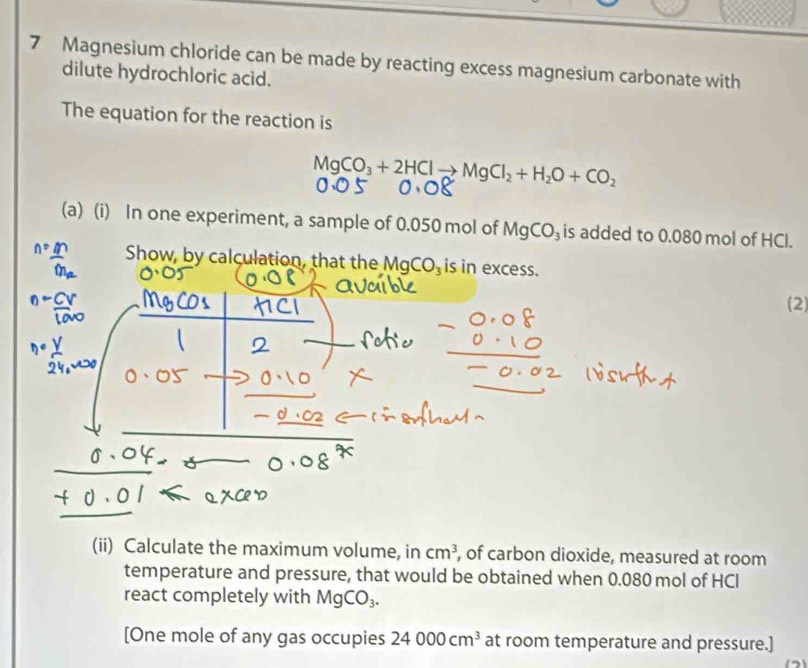 7 Magnesium chloride can be made by reacting excess magnesium carbonate with
dilute hydrochloric acid.
The equation for the reaction is
MgCO₃ + 2HCl → MgCl₂ + H₂O + CO₂
0.05 0.08
(a) (i) In one experiment, a sample of 0.050 mol of MgCO₃ is added to 0.080 mol of HCl.
Show, by calculation, that the MgCO₃ is in excess.
(2)
n = m
0.05 0.08 avaible
n = CV
MgCO₃ HCl
1 2 ratio
n = V
24,000
0.05 → 0.10 ×
- 0.02
0.04 ← 0.08
+ 0.01 ←
- 0.08
0.10
- 0.02
(ii) Calculate the maximum volume, in cm³, of carbon dioxide, measured at room
temperature and pressure, that would be obtained when 0.080 mol of HCl
react completely with MgCO₃.
[One mole of any gas occupies 24 000 cm³ at room temperature and pressure.]